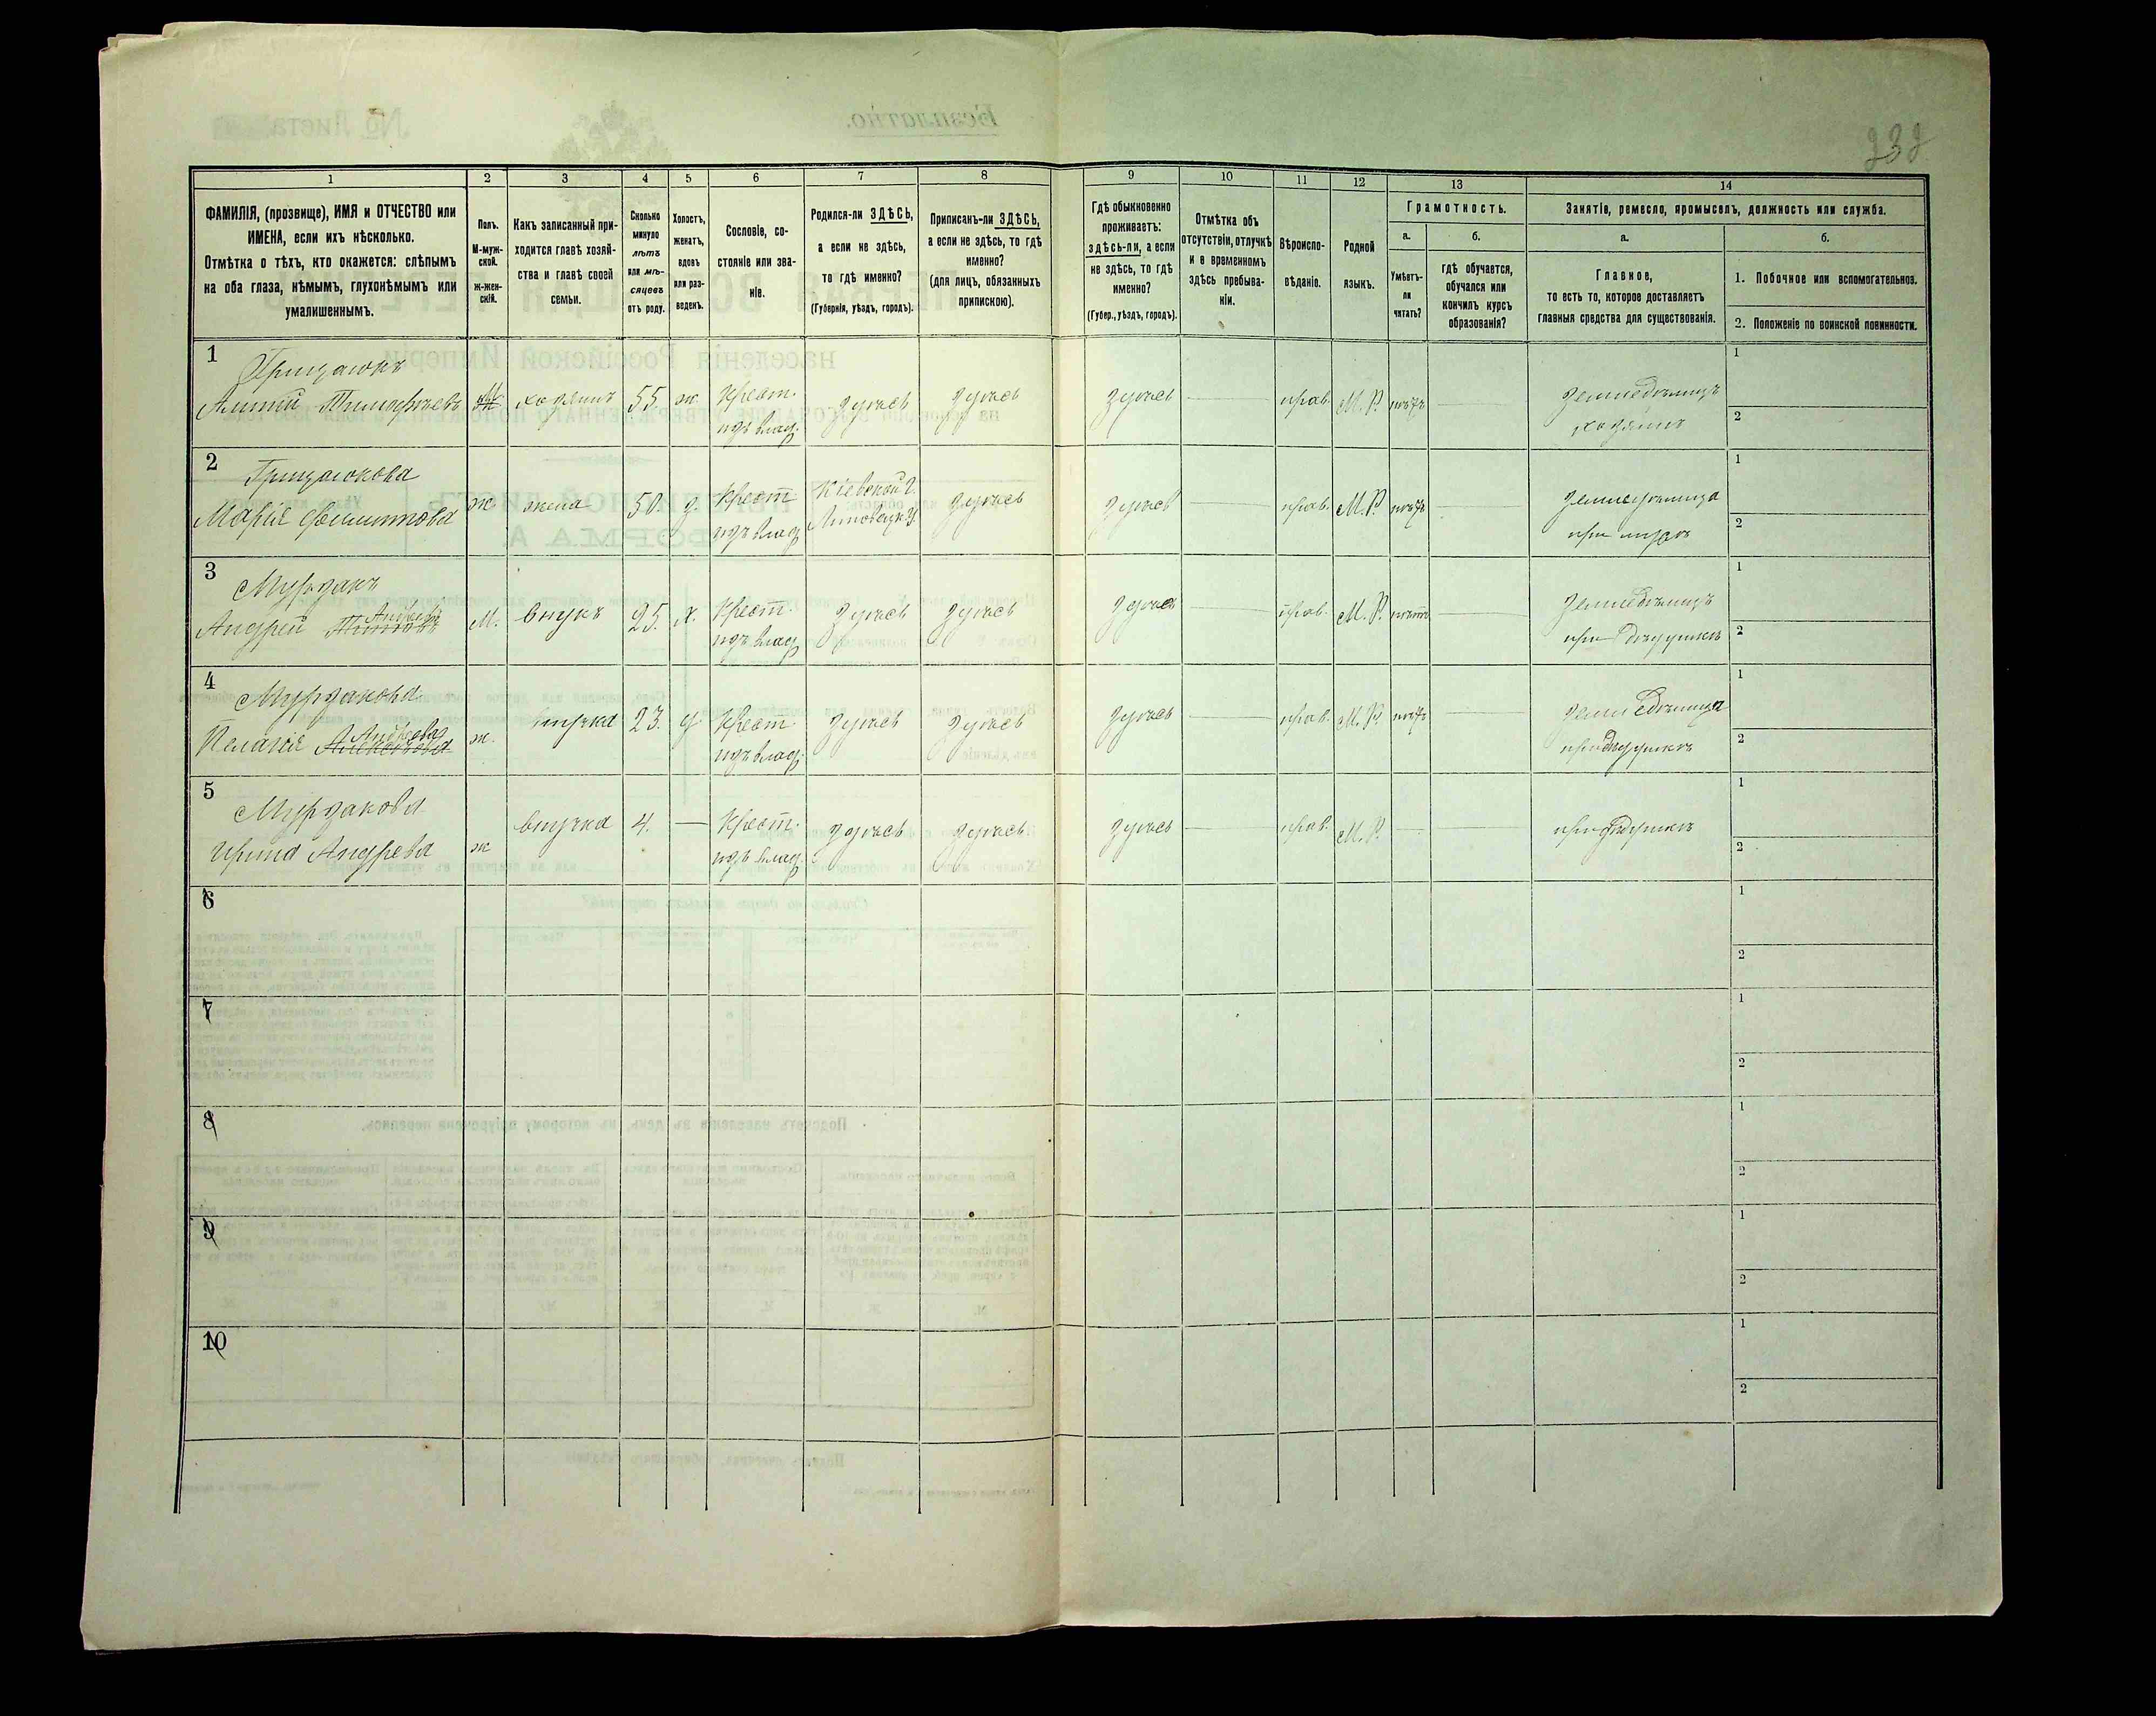 232
1 2 3 4 5 6 7 8 9 10 11 12 13 14
ФАМИЛІЯ, (прозвище), ИМЯ и ОТЧЕСТВО или
ИМЕНА, если ихъ нѣсколько.
Отмѣтка о тѣхъ, кто окажется: слѣпымъ
на оба глаза, нѣмымъ, глухонѣмымъ или
умалишеннымъ.
Полъ.
М-муж-
ской.
ж-жен-
скій.
Какъ записанный при-
ходится главѣ хозяй-
ства и главѣ своей
семьи.
Сколько
минуло
лѣтъ
или мѣ-
сяцевъ
отъ роду.
Холостъ,
женатъ,
вдовъ
или раз-
веденъ.
Сословіе, со-
стояніе или зва-
ніе.
Родился-ли ЗДѢСЬ,
а если не здѣсь,
то гдѣ именно?
(Губернія, уѣздъ, городъ).
Приписанъ-ли ЗДѢСЬ,
а если не здѣсь, то гдѣ
именно?
(для лицъ, обязанныхъ
припискою).
Гдѣ обыкновенно
проживаетъ:
здѣсь-ли, а если
не здѣсь, то гдѣ
именно?
(Губер., уѣздъ, городъ).
Отмѣтка объ
отсутствіи, отлучкѣ
и о временномъ
здѣсь пребыва-
ніи.
Вѣроиспо-
вѣданіе.
Родной
языкъ.
Грамотность.
а.
Умѣетъ-
ли
читать?
б.
гдѣ обучается,
обучался или
кончилъ курсъ
образованія?
Занятіе, ремесло, промыселъ, должность или служба.
а.
Главное,
то есть то, которое доставляетъ
главныя средства для существованія.
б.
1. Побочное или вспомогательное.
2. Положеніе по воинской повинности.
1
Грицаюкъ
Тимофѣевъ М хозяинъ 55 ж. Крест. здѣсь здѣсь здѣсь прав. М. Р. нѣтъ Земледѣлецъ
изъ влад. хозяинъ
1
2
2
Грицаюкова
Марія Филиппова ж. жена 50. з. Крест. Кіевской г. здѣсь здѣсь прав. М. Р. нѣтъ земледѣлица
изъ влад. Липовецк. у. при мужѣ
1
2
3
Мурзакъ
Андрей Андреевъ М. внукъ 25. х. Крест. здѣсь здѣсь здѣсь прав. М. Р. нѣтъ земледѣлецъ
изъ влад. при дѣдушкѣ
1
2
4
Мурзакова
Пелагія Андреева ж. внучка 23. Крест. здѣсь здѣсь здѣсь прав. М. Р. нѣтъ земледѣлица
изъ влад. при дѣдушкѣ
1
2
5
Мурзакова
Ирина Андреева ж внучка 4. — Крест. здѣсь здѣсь здѣсь прав. М. Р. при дѣдушкѣ
изъ влад.
1
2
6
1
2
7
1
2
8
1
2
9
1
2
10
1
2